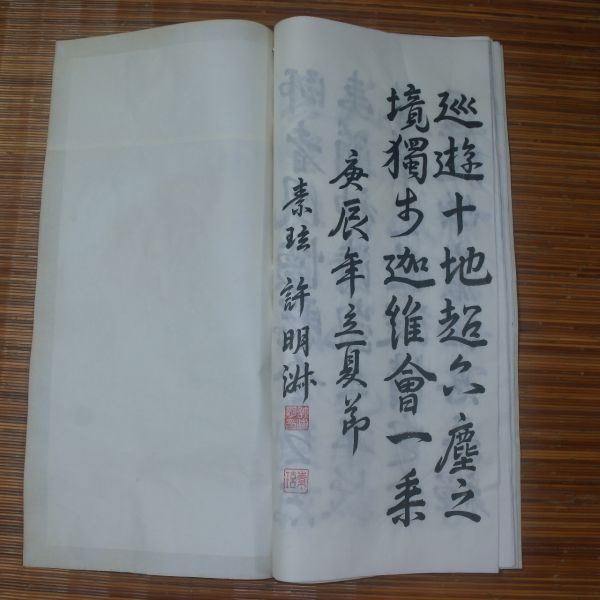 巡遊十地超六塵之
境獨步迦維會一乘
庚辰年立夏節
素玹許明淋